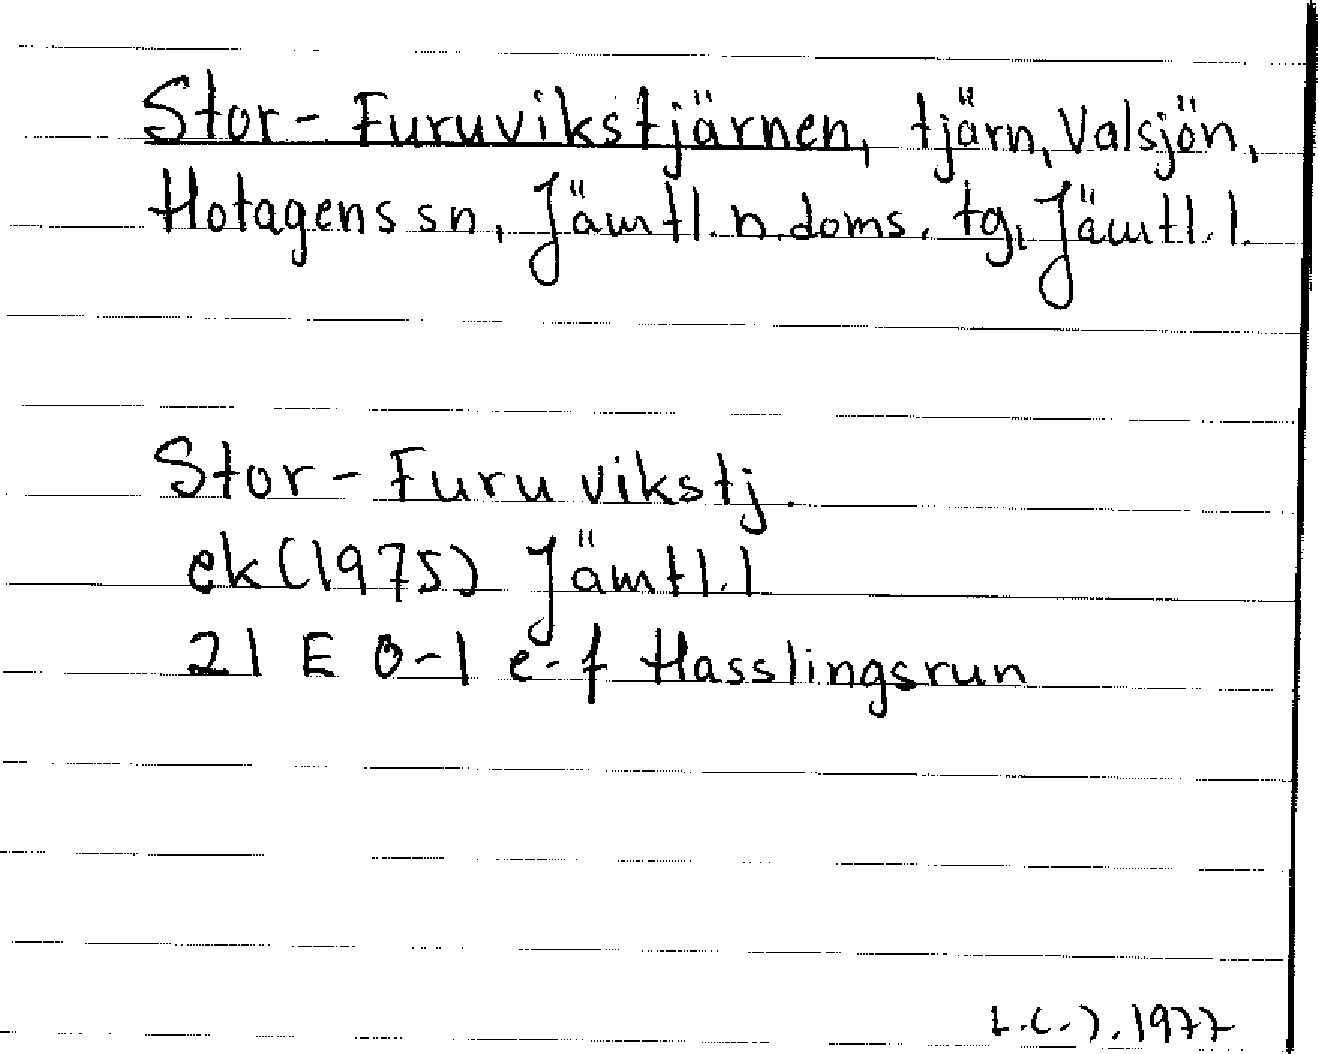 Stor-Furuvikstjärnen, tjärn, Valsjön,
Hotagens sn, Jämtl. n. doms. tg, Jämtl. l.
Stor-Furuvikstj.
ek (1975) Jämtl. l
21 E 0-1 e-f Hasslingsrun
L.C.J. 1977